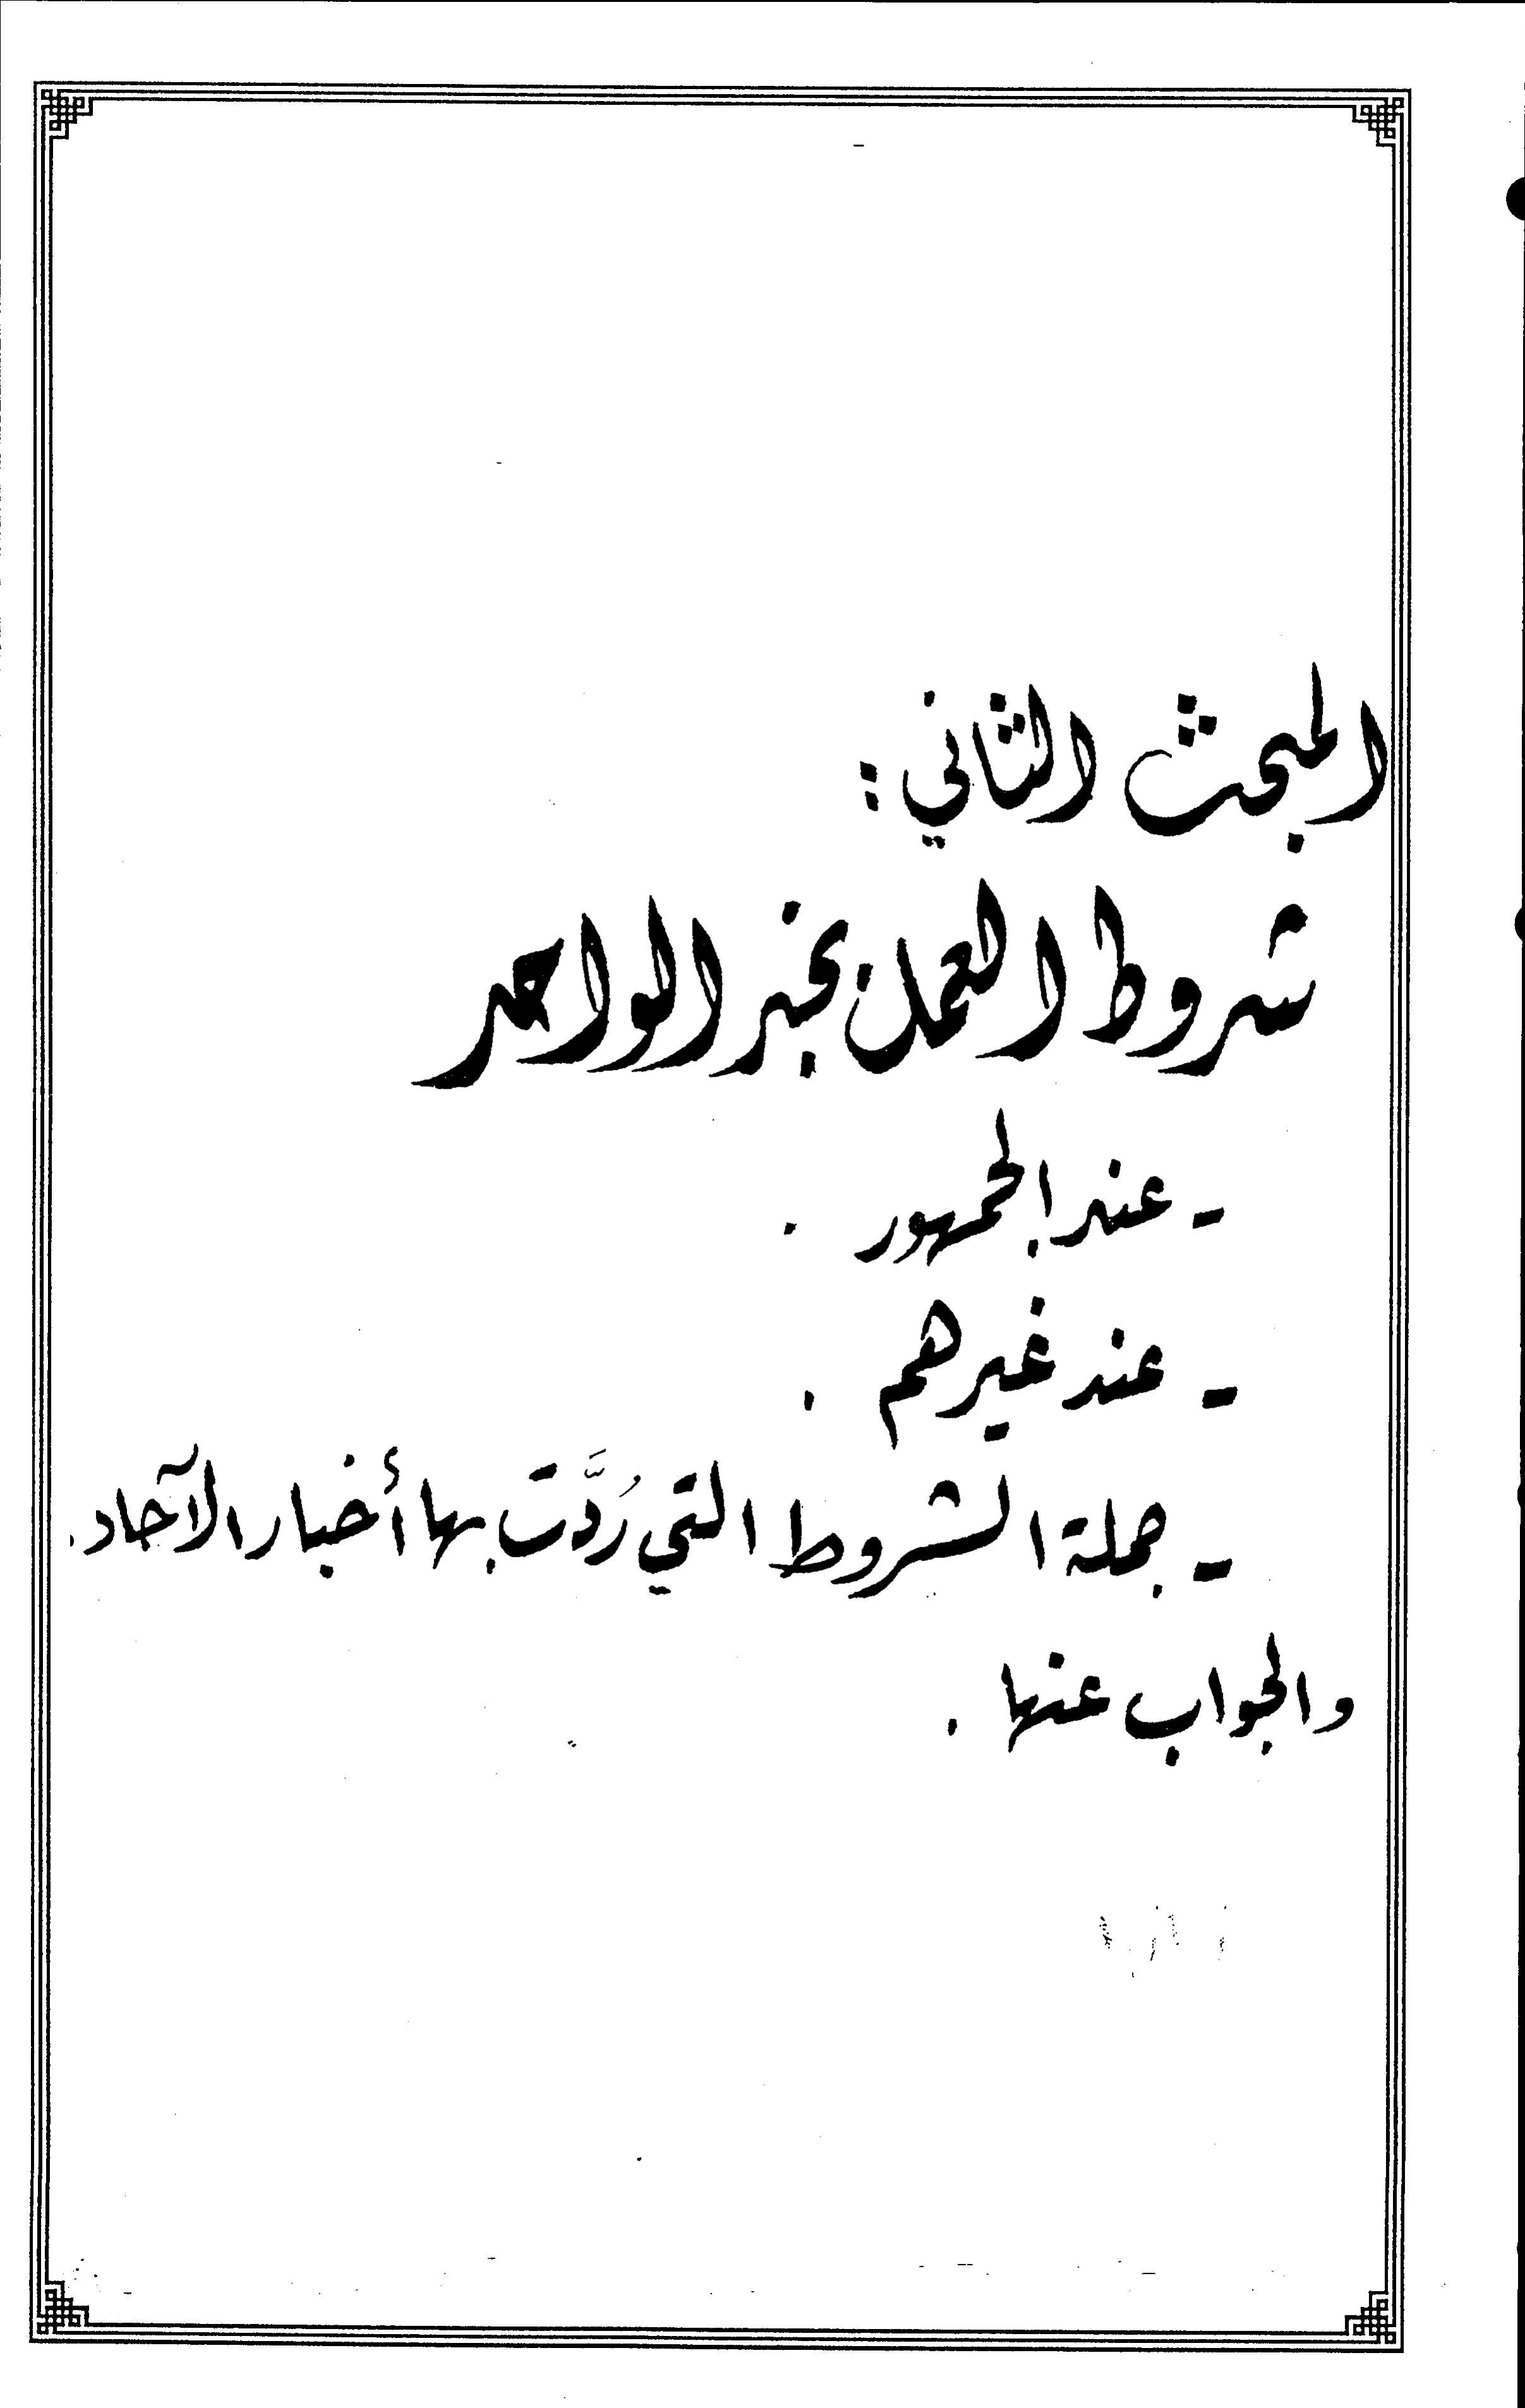 المبحث الثاني :
شروط العمل بخبر الواحد
- عند الجمهور .
- عند غيرهم .
- جملة الشروط التي رُدَّت بها أخبار الآحاد.
والجواب عنها .